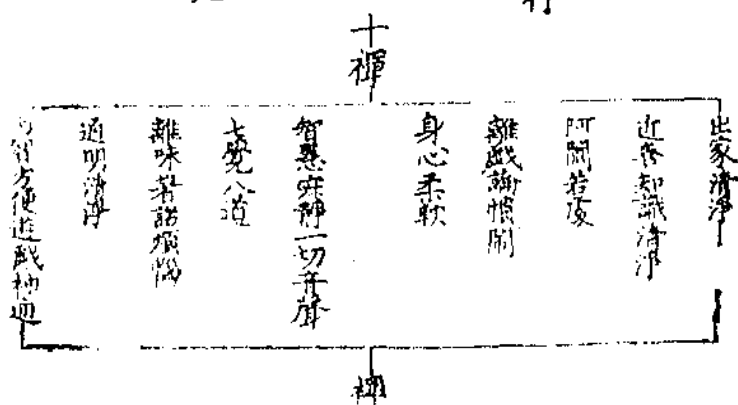 行
十禪
出家清淨
近善知識清淨
阿闌若處
離戲論憒鬧
身心柔軟
智慧寂靜一切音聲
七覺八道
離味著諸煩惱
通明清淨
智方便遊戲神通
禪